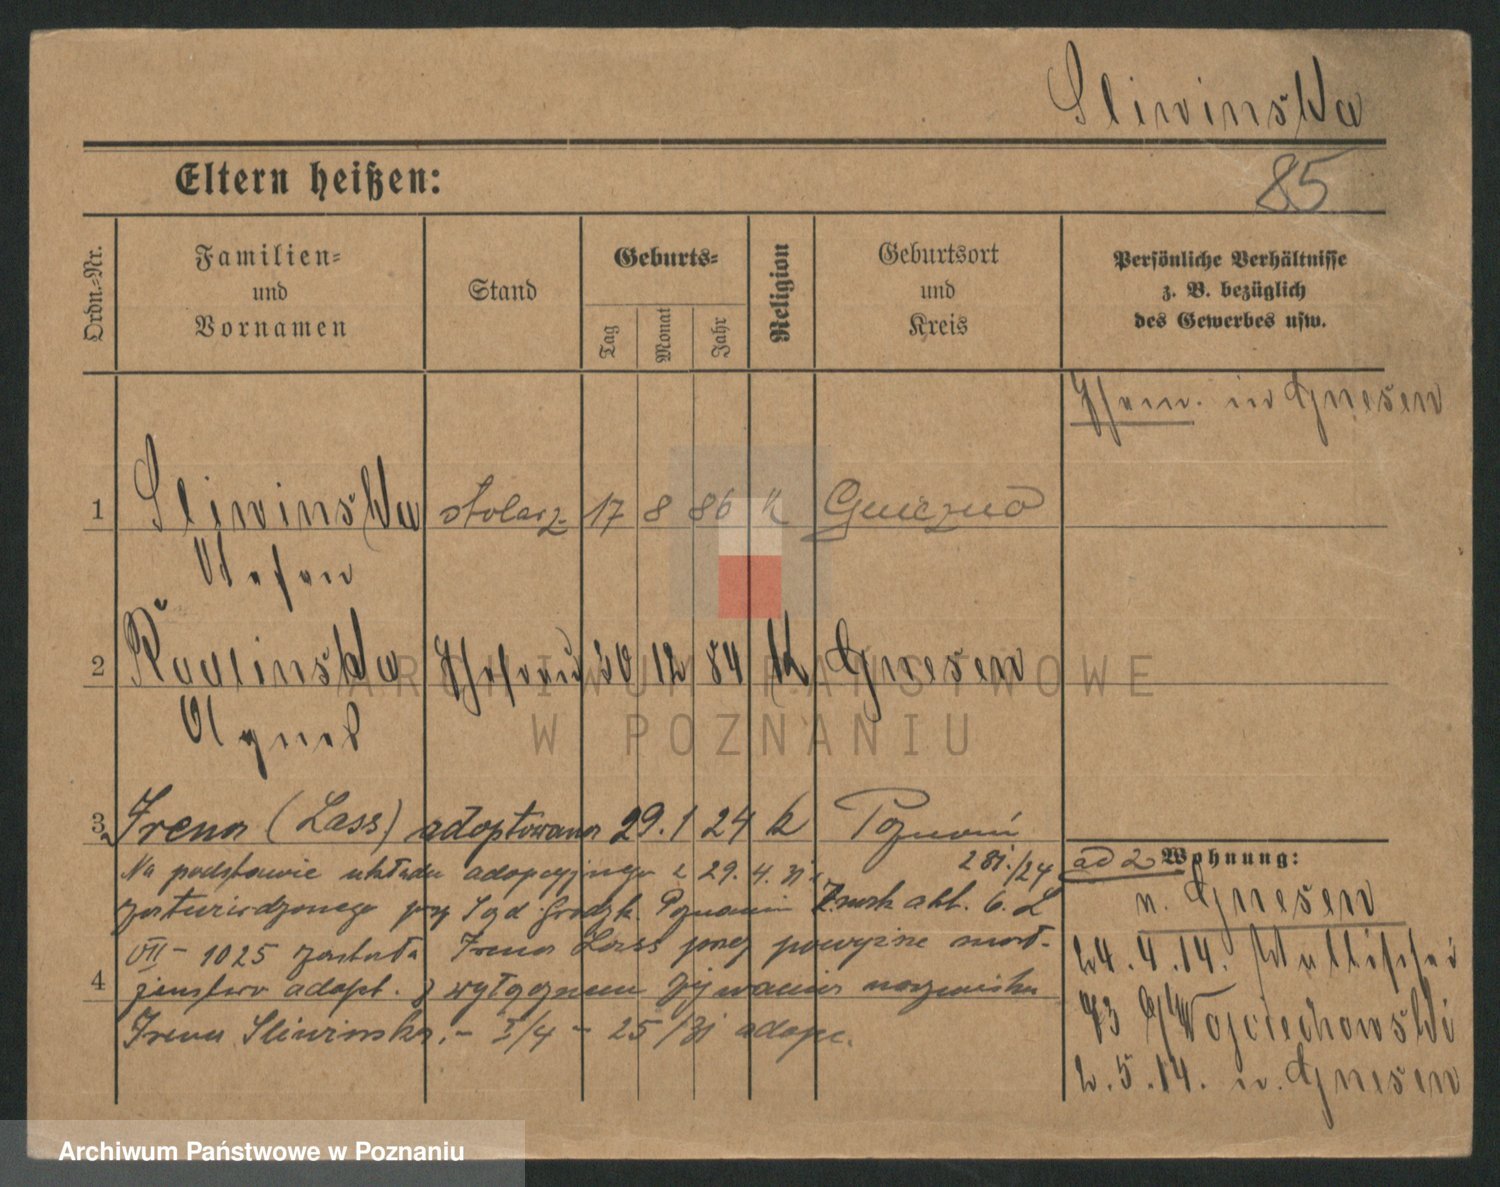 Sliwinska
85
Eltern heißen:
Ordn.-Nr.
Familien-
und
Vornamen
Stand
Geburts-
Tag
Monat
Jahr
Religion
Geburtsort
und
Kreis
Persönliche Verhältnisse
z. B. bezüglich
des Gewerbes usw.
in Gnesen
1 Sliwinska stolarz 17 8 86 k Gniezno
2 Radlinska 20 12 84 k Gnesen
Agnes
3 Irena (Lass) adoptowana 29. 1 24 k Poznań
Na podstawie układu adopcyjnego z 29. 4. 31.
281./24
ad 2 Wohnung:
n. Gnesen
zatwierdzonego przez Sąd Grodzk. Poznania Znak akt. 6. L
VII - 1025 została Irena Lass przez powyższe małż-
24. 4. 14.
4 żeństwo adopt. z wyłącznem używaniem nazwiska
73 Wojciechowski
Irena Sliwinska. - I/4 - 25/31 adopc.
2. 5. 14. n. Gnesen
ARCHIWUM PAŃSTWOWE
W POZNANIU
Archiwum Państwowe w Poznaniu